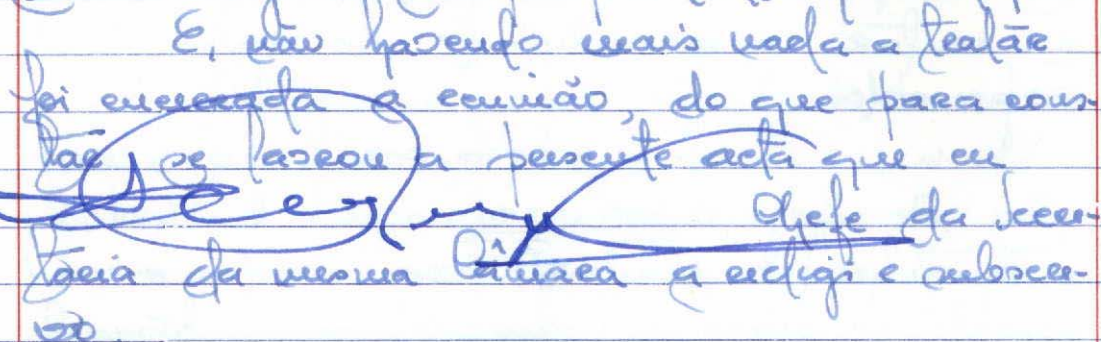 E, não havendo mais nada a tratar
foi encerrada a reunião, do que para cons-
tar se lavrou a presente acta que eu
Chefe da Secre-
taria da mesma Câmara a redigi e subscre-
vo.